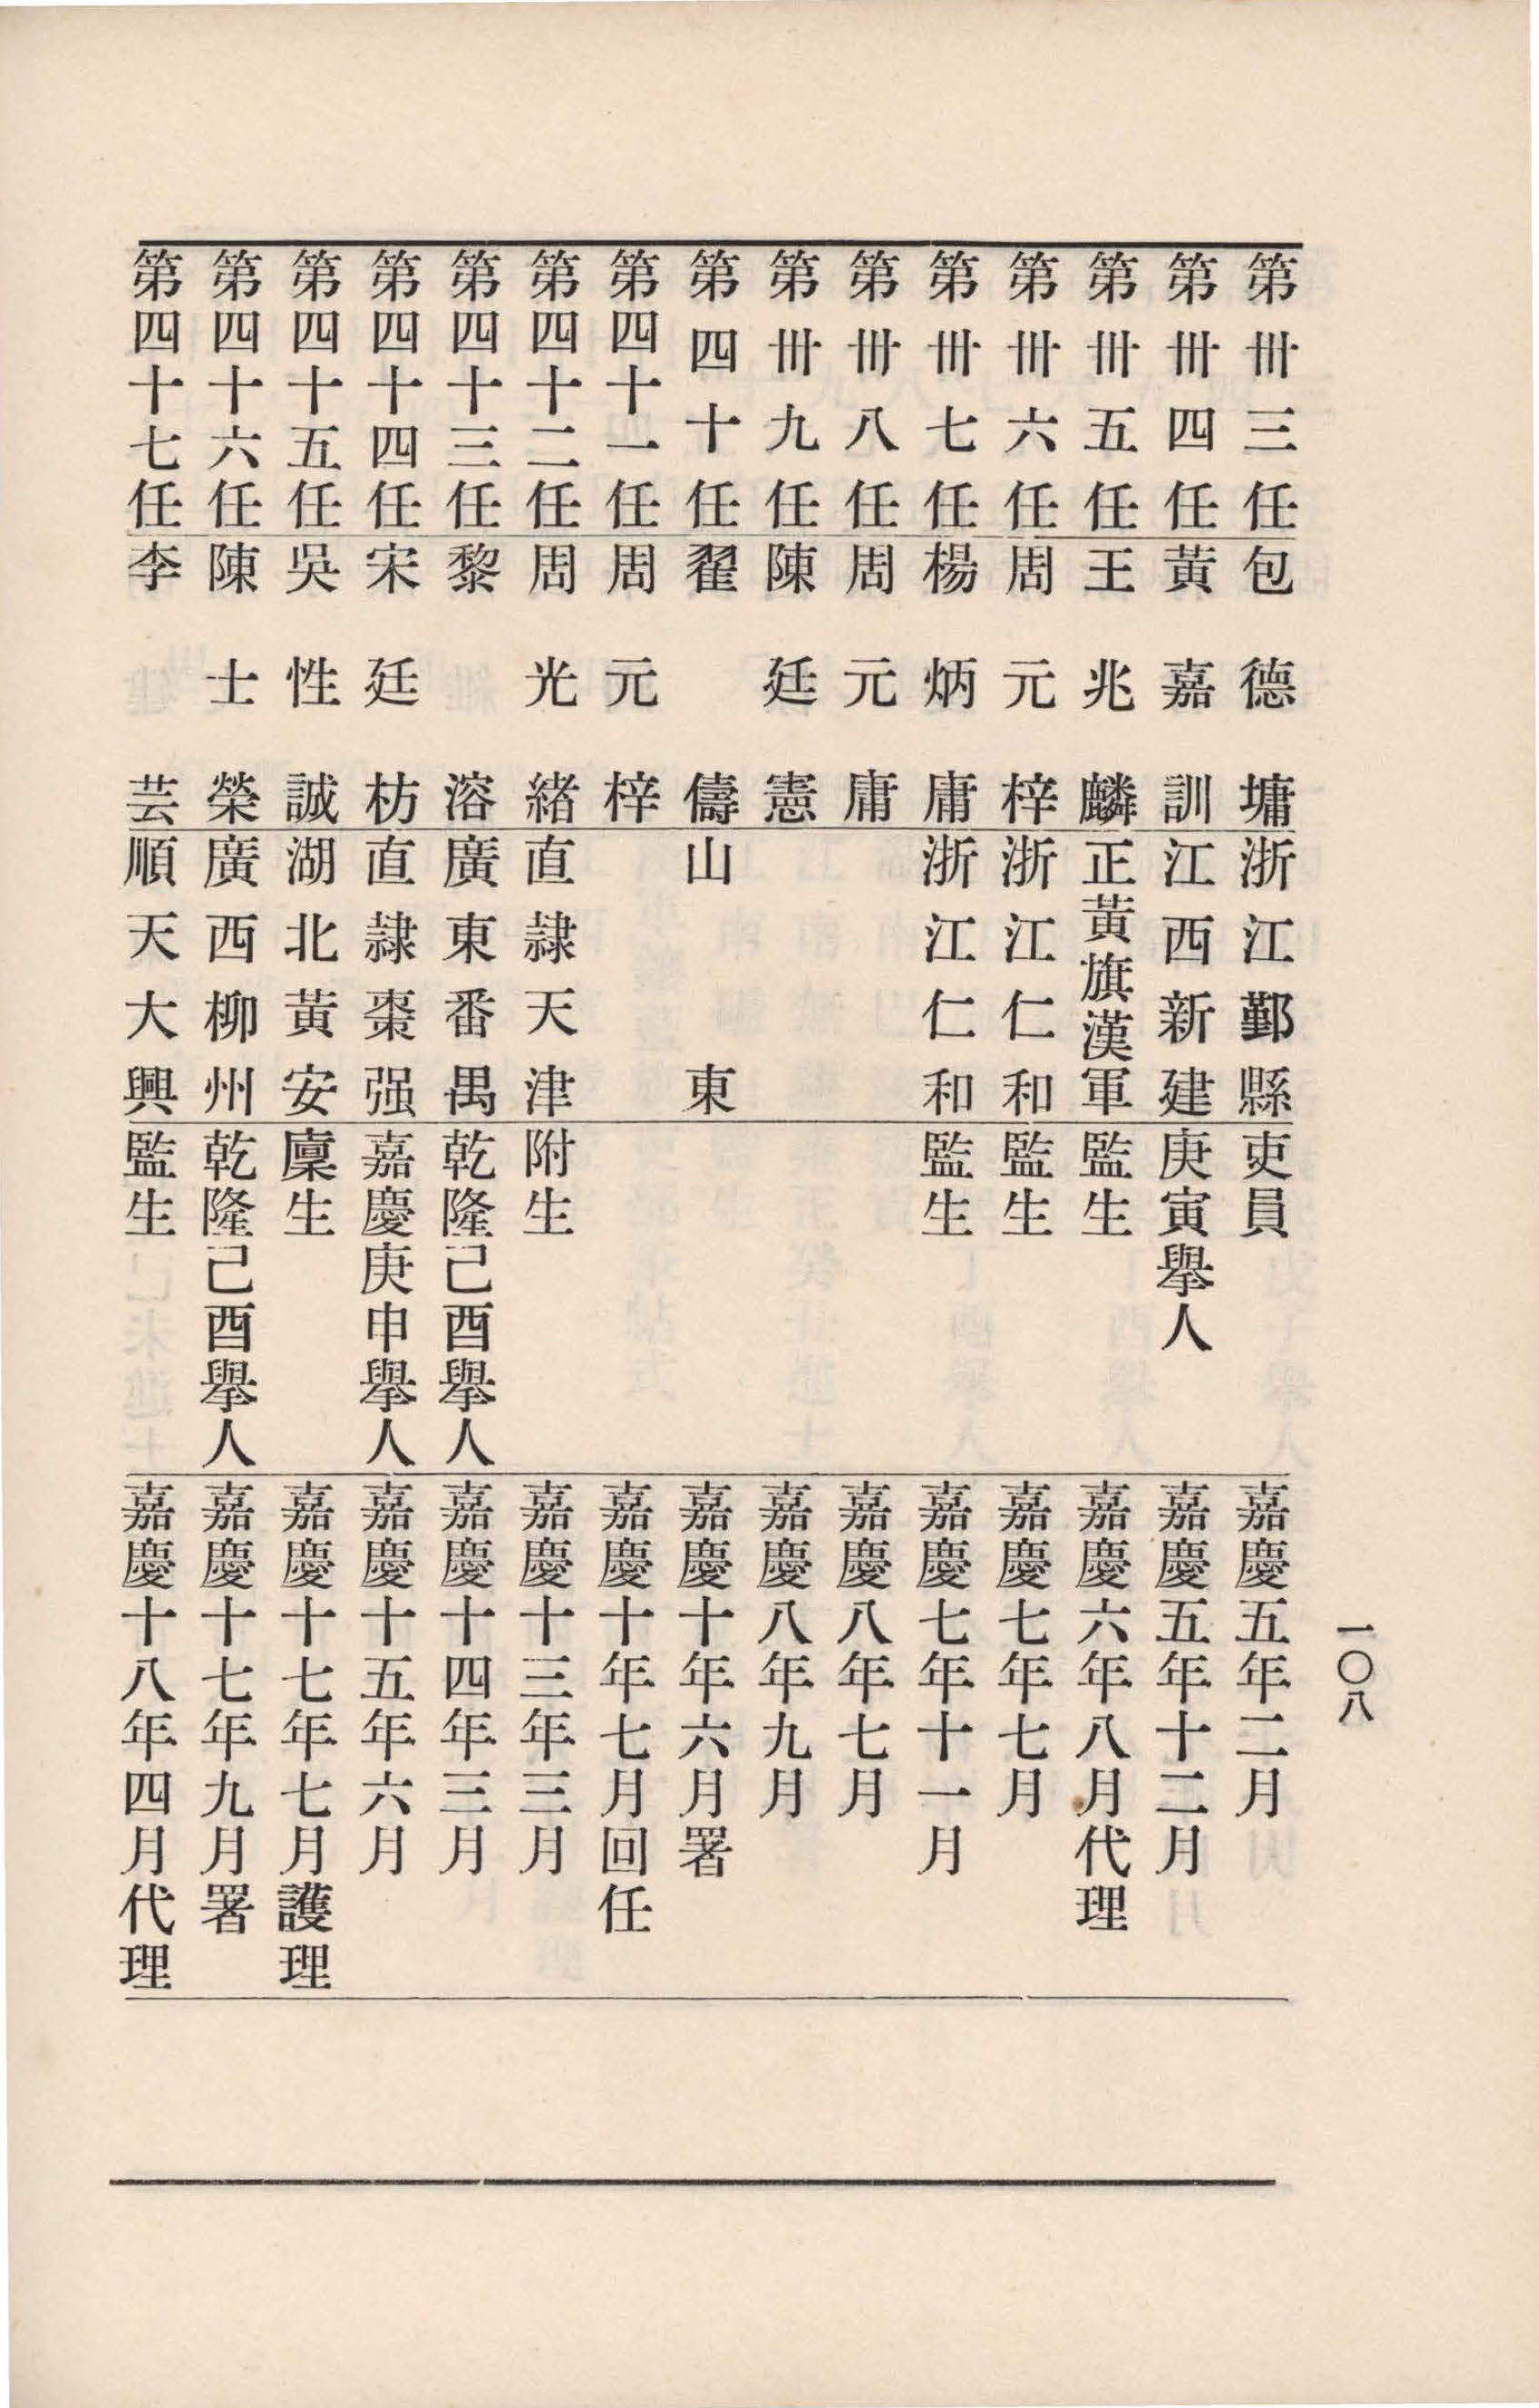 第卅三任包德墉浙江鄞縣吏員嘉慶五年二月
第卅四任黃嘉訓江西新建庚寅擧人嘉慶五年十二月
第卅五任王兆麟正黃旗漢軍監生嘉慶六年八月代理
第卅六任周元梓浙江仁和監生嘉慶七年七月
第卅七任楊炳庸浙江仁和監生嘉慶七年十一月
第卅八任周元庸嘉慶八年七月
第卅九任陳廷憲嘉慶八年九月
第四十任翟儔山東嘉慶十年六月署
第四十一任周元梓嘉慶十年七月回任
第四十二任周光緒直隸天津附生嘉慶十三年三月
第四十三任黎溶廣東番禺乾隆己酉擧人嘉慶十四年三月
第四十四任宋廷枋直隸棗强嘉慶庚申擧人嘉慶十五年六月
第四十五任吳性誠湖北黃安廩生嘉慶十七年七月護理
第四十六任陳士榮廣西柳州乾隆己酉擧人嘉慶十七年九月署
第四十七任李芸順天大興監生嘉慶十八年四月代理
一〇八